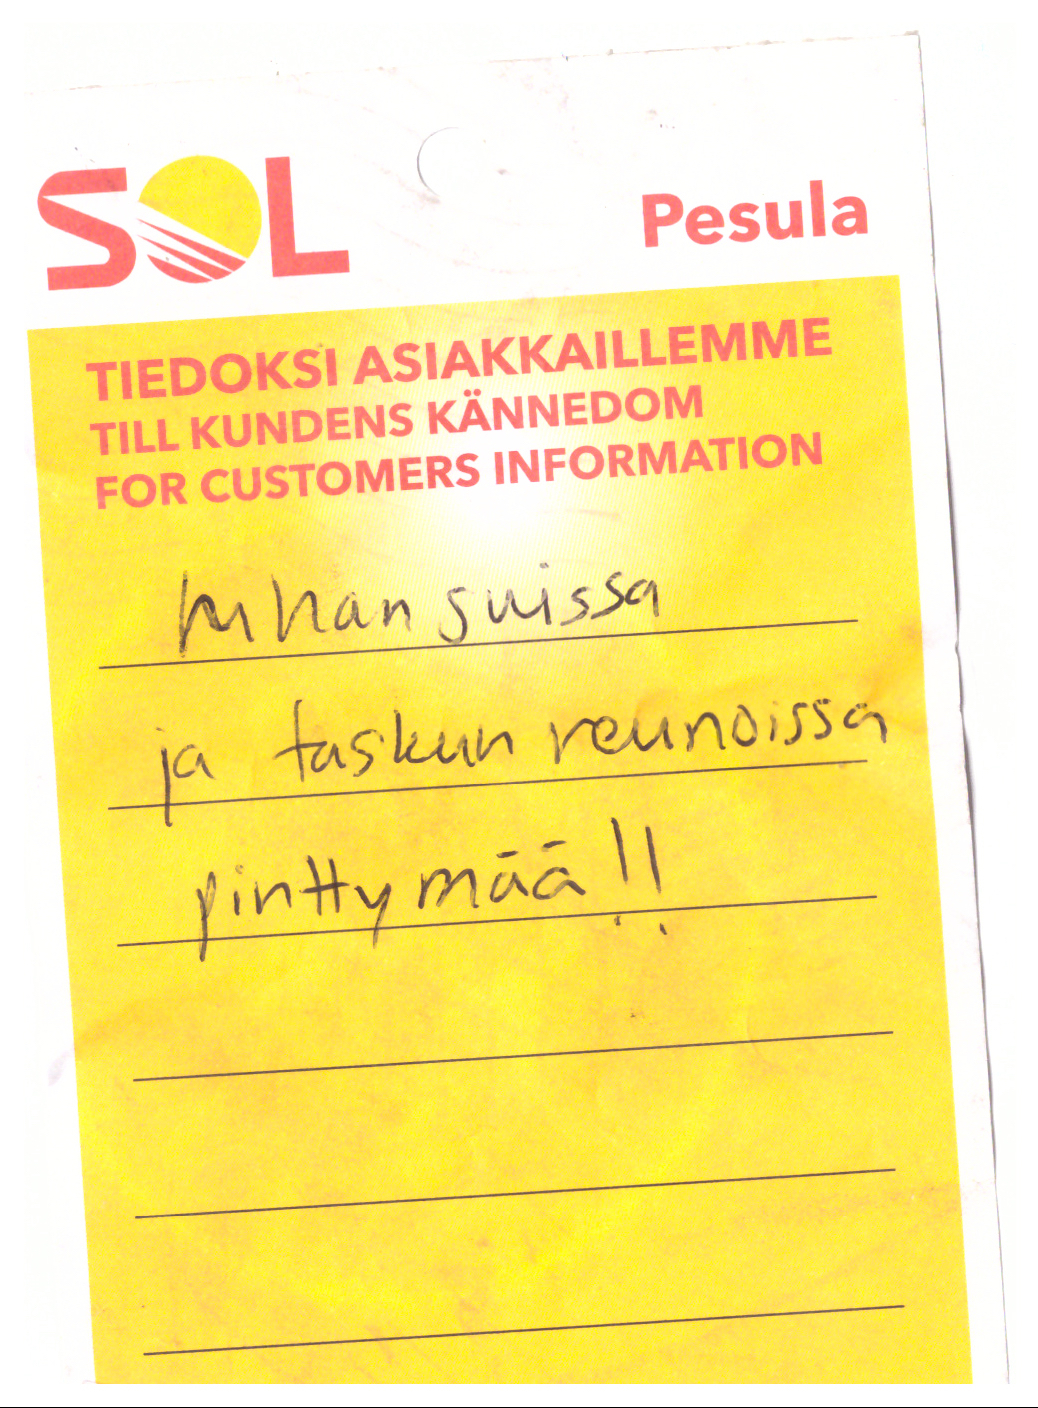 SOL
Pesula
TIEDOKSI ASIAKKAILLEMME
TILL KUNDENS KÄNNEDOM
FOR CUSTOMERS INFORMATION
hihan suissa
ja taskun reunoissa
pinttymää!!